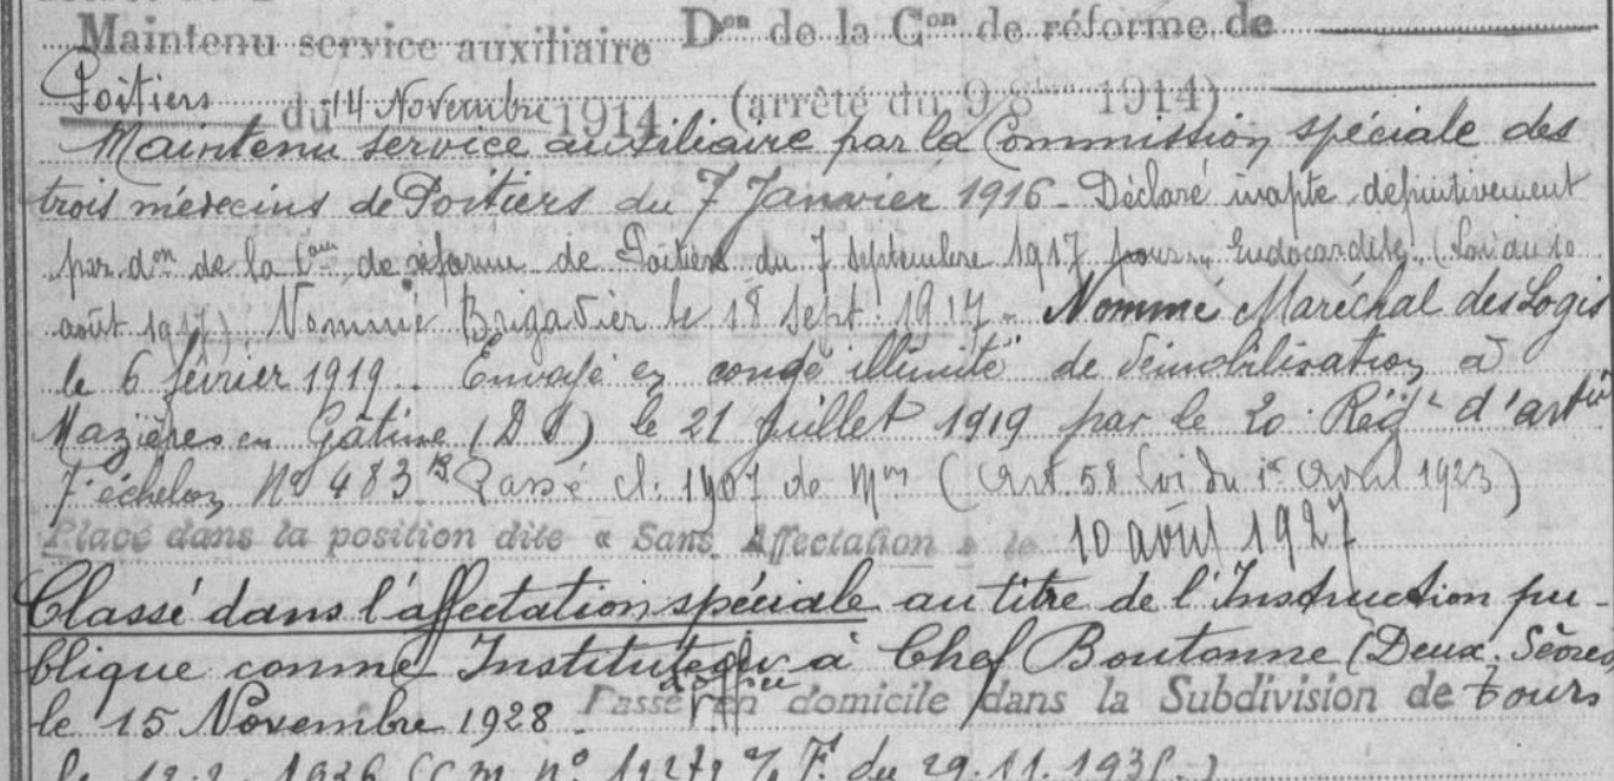 Maintenu service auxiliaire Dᵒⁿ de la Cᵒⁿ de réforme de
Poitiers du 14 Novembre 1914 (arrêté du 9/8bre 1914)
Maintenu service auxiliaire par la Commission spéciale des
trois médecins de Poitiers du 7 Janvier 1916 - Déclaré inapte définitivement
par dᵒⁿ de la Cᵒⁿ de réforme de Poitiers du 7 Septembre 1917 pour "Endocardite" (Loi du 10
août 1917) Nommé Brigadier le 18 Sept. 1917 - Nommé Maréchal des Logis
le 6 février 1919. Envoyé en congé illimité de démobilisation à
Mazières en Gâtine (D S) le 21 Juillet 1919 par le 20 Régᵗ d'artⁱᵉ
7ᵉ échelon, Nº 483 Passé cl. 1907 de Mᵒⁿ (Art. 58 Loi du 1ᵉʳ Avril 1923)
Placé dans la position dite « Sans Affectation » le 10 août 1927
Classé dans l'affectation spéciale au titre de l'Instruction pu-
blique comme Instituteur à Chef Boutonne (Deux. Sèvres
le 15 Novembre 1928. Passé domicile dans la Subdivision de Tours
le 12.2.1936 (C.M. nº F. du 29.11.193